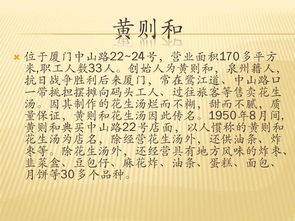 黄则和
位于厦门中山路22~24号，营业面积170多平方
米,职工人数33人。创始人为黄则和，泉州籍人，
抗日战争胜利后来厦门，常在鹭江道、中山路口
一带挑担摆摊向码头工人、过往旅客等售卖花生
汤。因其制作的花生汤烂而不糊，甜而不腻，质
量保证，黄则和花生汤因此传名。1950年8月间，
黄则和典买中山路22号店面，以人惯称的黄则和
花生汤为店名，除经营花生汤外，还供油条、炸
枣等。除花生汤外，还经营具有地方风味的炸枣、
韭菜盒、豆包仔、麻花炸、油条、蛋糕、面包、
月饼等30多个品种。